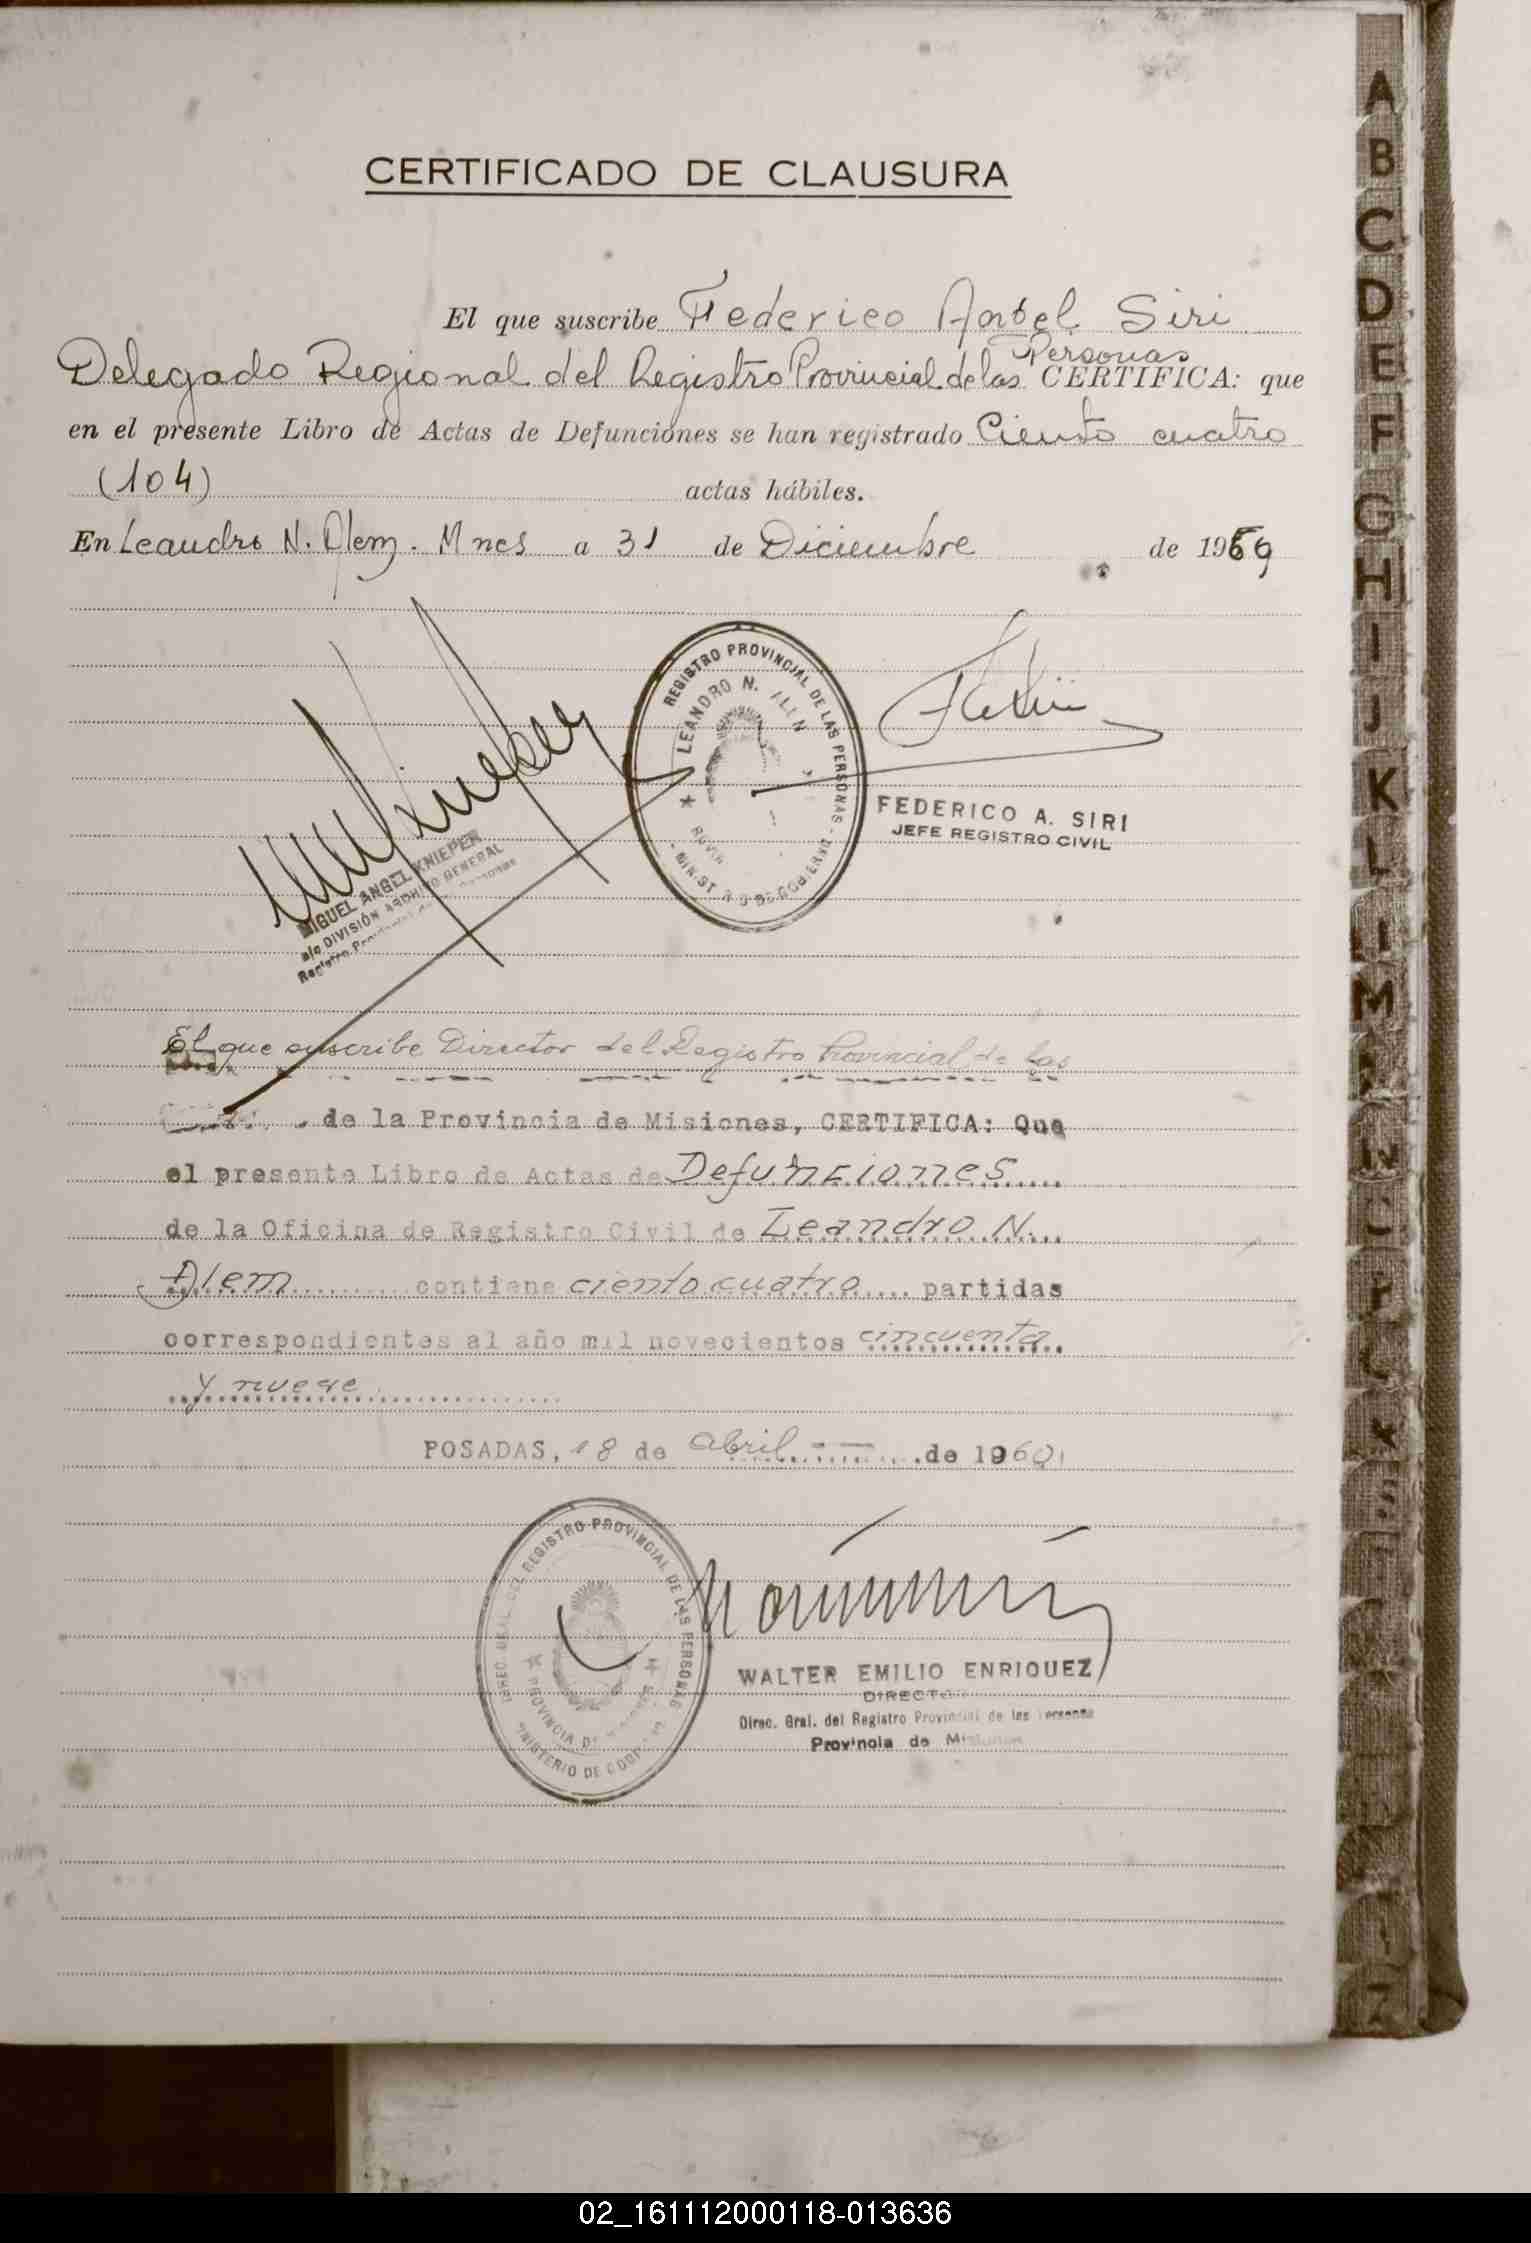 CERTIFICADO DE CLAUSURA
El que suscribe Federico Angel Siri
Delegado Regional del Registro Provincial de las Personas CERTIFICA: que
en el presente Libro de Actas de Defunciones se han registrado Ciento cuatro
(104) actas hábiles.
En Leandro N. Alem. Mnes a 31 de Diciembre de 1959
REGISTRO PROVINCIAL DE LAS PERSONAS
LEANDRO N. ALEN
FEDERICO A. SIRI
JEFE REGISTRO CIVIL
MIGUEL ANGEL KNIEPER
a/c DIVISIÓN ARCHIVO GENERAL
Registro Provincial de las Personas
El que suscribe Director del Registro Provincial de las
de la Provincia de Misiones, CERTIFICA: Que
el presente Libro de Actas de Defunciones
de la Oficina de Registro Civil de Leandro N.
Alem contiene ciento cuatro partidas
correspondientes al año mil novecientos cincuenta
y nueve
POSADAS, 18 de abril de 1960
DIREC. GRAL. DEL REGISTRO PROVINCIAL DE LAS PERSONAS
PROVINCIA DE MISIONES
MINISTERIO DE GOBIERNO
WALTER EMILIO ENRIQUEZ
DIRECTOR
Direc. Gral. del Registro Provincial de las Personas
Provincia de Misiones
A
B
C
D
E
F
G
H
I
J
K
L
M
N
P
S
Z
02_161112000118-013636